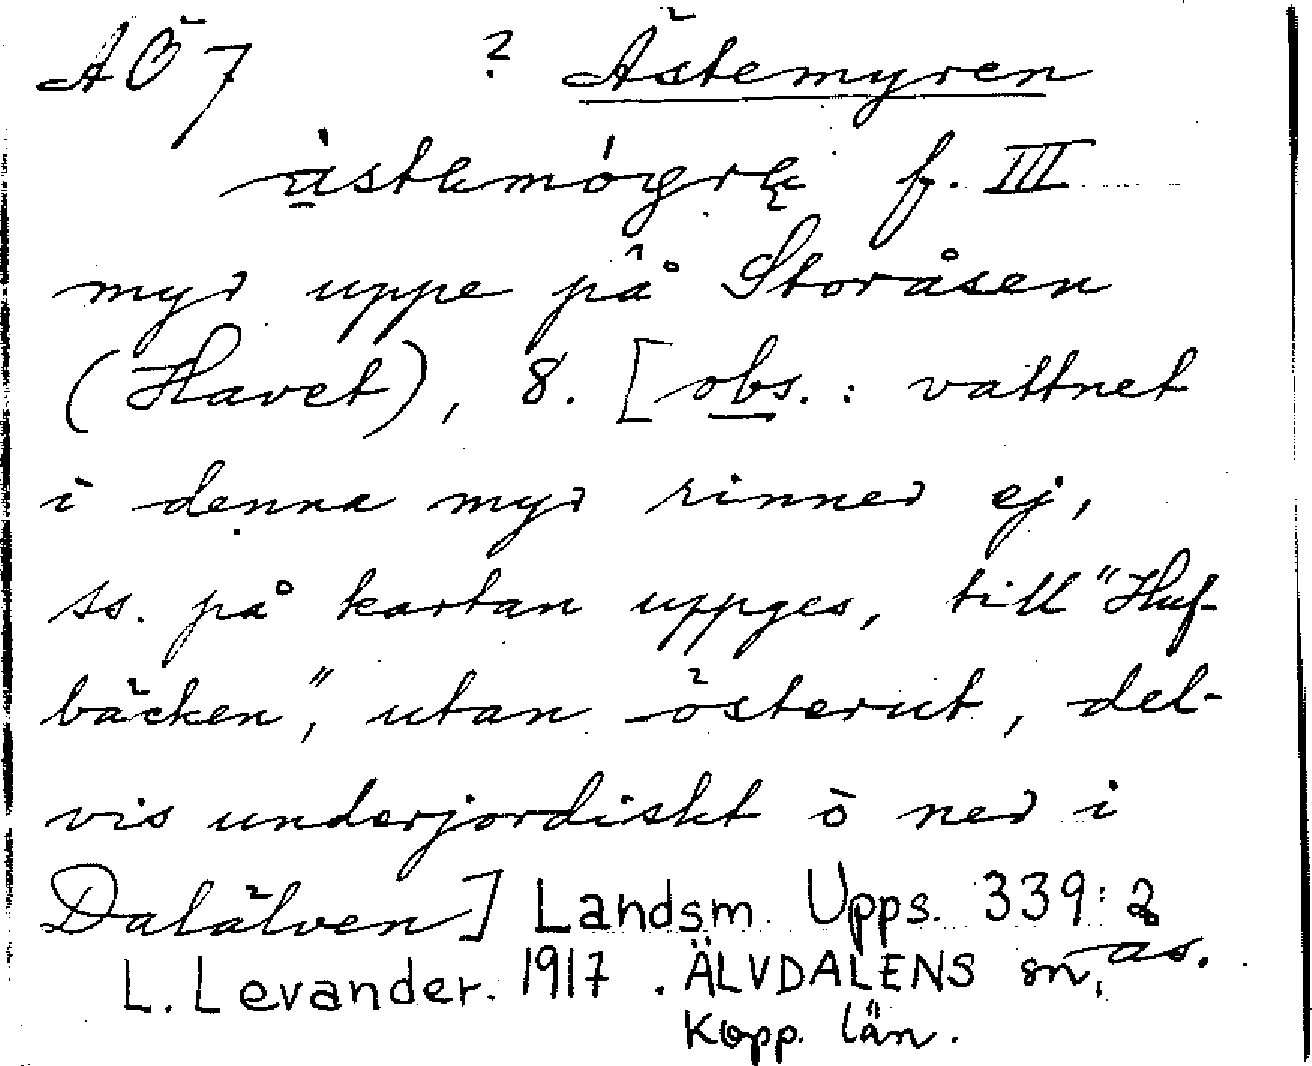 AÖ 7 ? Ästemyren
f. III
myr uppe på Storåsen
(Havet), 8. [obs.: vattnet
i denna myr rinner ej,
ss. på kartan uppges, till "Huf-
bäcken", utan österut, del-
vis underjordiskt ö ner i
Dalälven] Landsm. Upps. 339:2 as.
L. Levander. 1917. ÄLVDALENS sn,
Kopp. län.